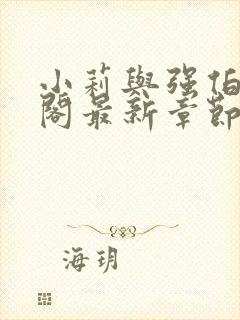 小莉與强伯
閣最新章節
海玥